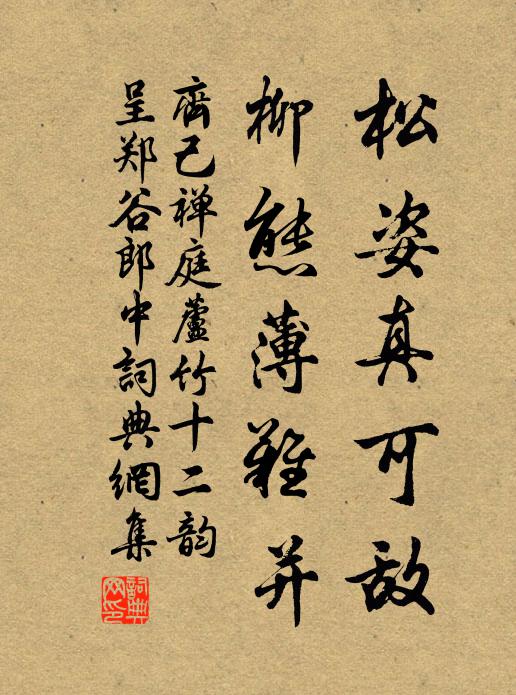 松姿真可敌
柳態薄難并
齊己禅庭蘆竹十二韵
呈郑谷郎中詞典網集
詞典網印